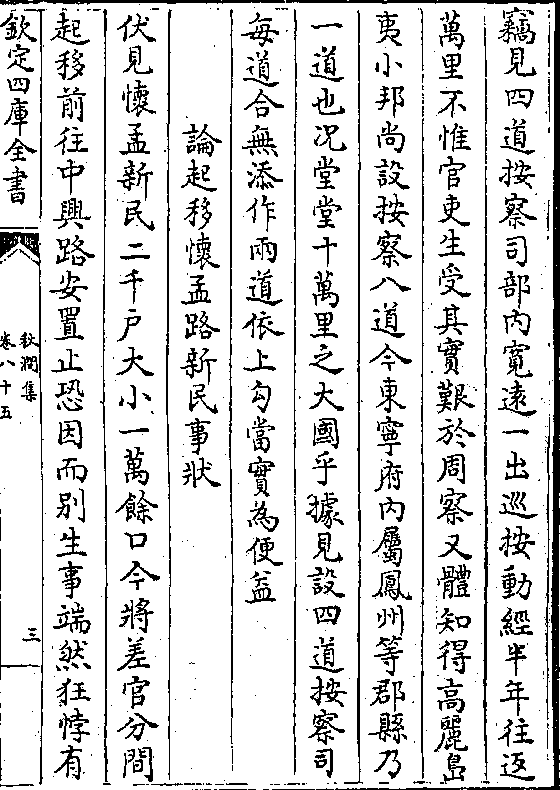 竊見四道按察司部内寛遠一出巡按動經半年往返
萬里不惟官吏生受其實艱於周察又體知得高麗島
夷小邦尚設按察八道今東寧府内屬鳳州等郡縣乃
一道也况堂堂十萬里之大國乎據見設四道按察司
每道合無添作兩道依上勾當實為便益
論起移懷孟路新民事狀
伏見懷孟新民二千户大小一萬餘口今將差官分間
起移前往中興路安置止恐因而别生事端然狂悖有
欽定四庫全書
秋澗集
卷八十五
三